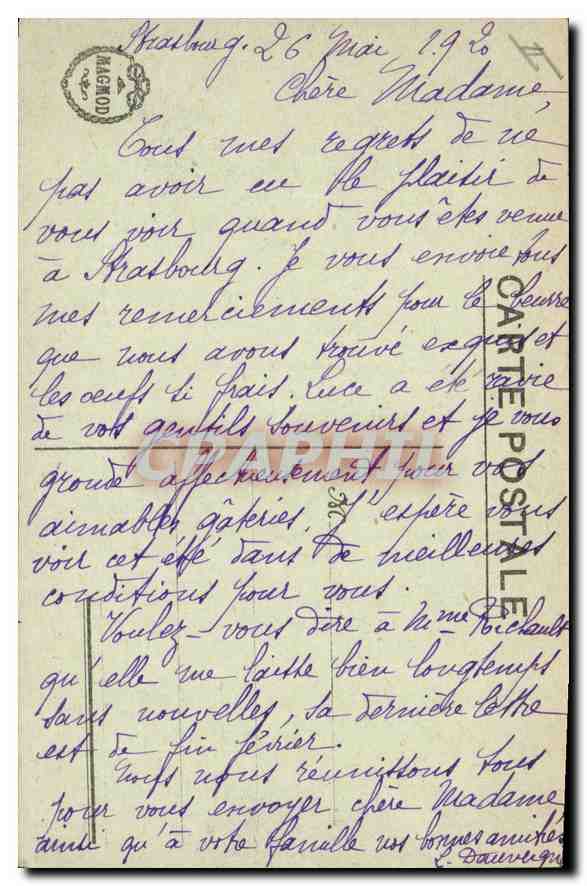 Strasbourg. 26 Mai 1920
MAGMOD
Chère Madame,
Tous mes regrets de ne
pas avoir eu le plaisir de
vous voir quand vous êtes venue
à Strasbourg. Je vous envoie tous
mes remerciements pour le beurre
que nous avons trouvé exquis et
les oeufs si frais. Luce a été ravie
de vos gentils souvenirs et je vous
gronde affectueusement pour vos
aimables gâteries. J'espère vous
voir cet été dans de meilleures
conditions pour vous.
Voulez-vous dire à Mme Richault
qu'elle me laisse bien longtemps
sans nouvelles, sa dernière lettre
est de fin février.
Nous nous réunissons tous
pour vous envoyer chère Madame
ainsi qu'à votre famille nos bonnes amitiés
CARTE POSTALE
M
CPAPHIL